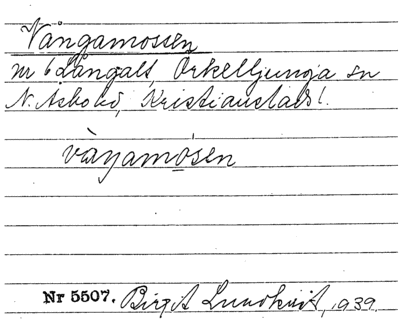 Vångamossen
nr 6 Långalt, Örkelljunga sn
N. Åsbohd, Kristianstads l.
vàŋamósen
Nr 5507. Birgit Lundkvist, 1939.